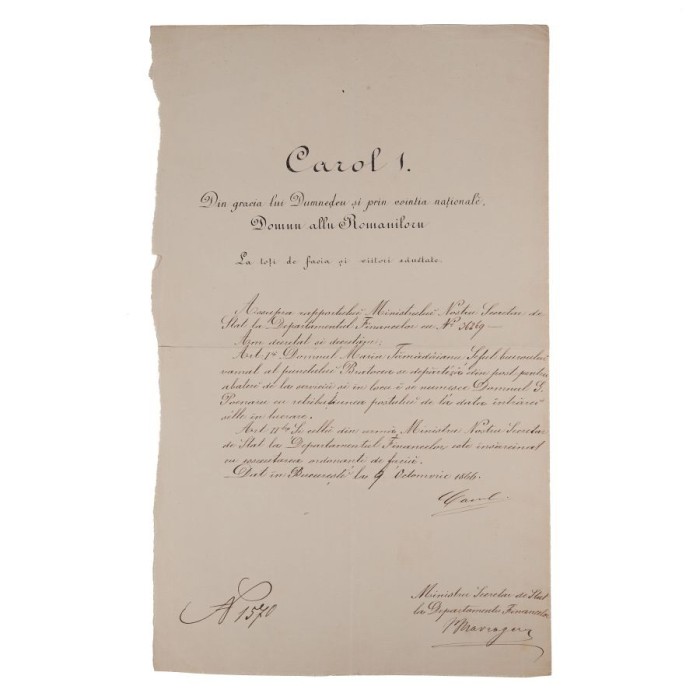 Carol I.
Din gracia lui Dumnedeu și prin vointia națională,
Domnu allu Romaniloru
La toți de facia și viitori sănĕtate.
Assupra rapportului Ministrului Nostru Secretar de
Stat la Departamentul Financelor cu No.
Am decretat și decretăm:
Art. I Domnul Marin Șeful biuroului
vamal al punctului se din post, pentru
abateri de la servicii și in locu i se numesce Domnul
cu postului de la data
in lucrare.
Art. II Si cellu din urmă Ministru Nostru Secretar
de Stat la Departamentul Financelor este insărcinat
cu essecutarea ordonantei de facia.
Dat in Bucuresti la 9 Octomvrie 1866.
Carol
Ministru Secretar de Stat
la Departamentu Financelor
No 1570